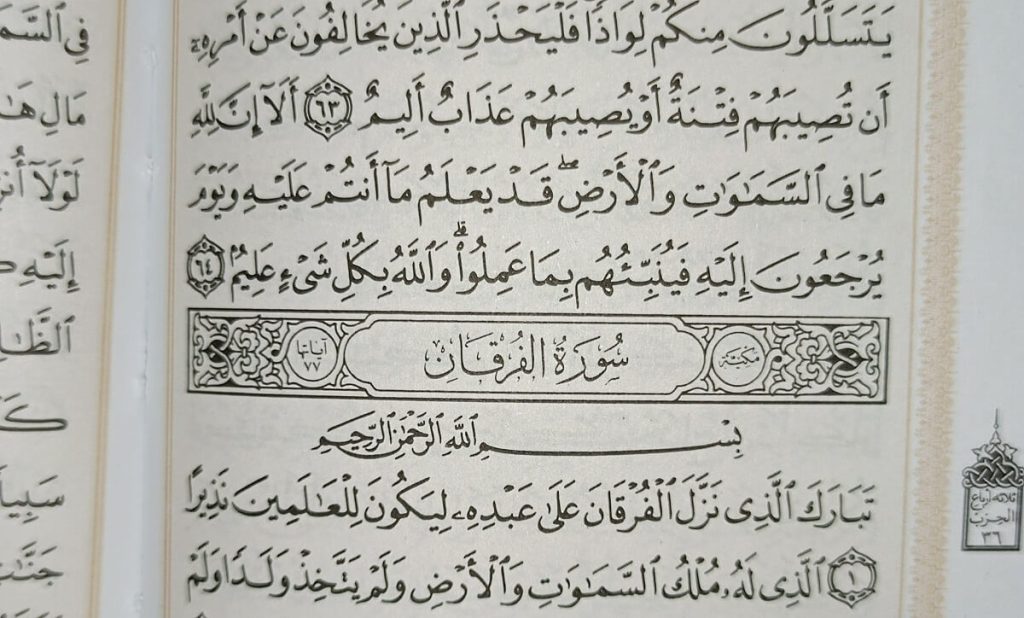 يَتَسَلَّلُونَ مِنكُمْ لِوَاذًا فَلْيَحْذَرِ ٱلَّذِينَ يُخَالِفُونَ عَنْ أَمْرِهِۦٓ
أَن تُصِيبَهُمْ فِتْنَةٌ أَوْ يُصِيبَهُمْ عَذَابٌ أَلِيمٌ ٦٣ أَلَآ إِنَّ لِلَّهِ
مَا فِى ٱلسَّمَٰوَٰتِ وَٱلْأَرْضِۖ قَدْ يَعْلَمُ مَآ أَنتُمْ عَلَيْهِ وَيَوْمَ
يُرْجَعُونَ إِلَيْهِ فَيُنَبِّئُهُم بِمَا عَمِلُوا۟ۗ وَٱللَّهُ بِكُلِّ شَىْءٍ عَلِيمٌۢ ٦٤
مكية سُورَةُ الفُرْقَانِ آياتها ٧٧
بِسْمِ ٱللَّهِ ٱلرَّحْمَٰنِ ٱلرَّحِيمِ
تَبَارَكَ ٱلَّذِى نَزَّلَ ٱلْفُرْقَانَ عَلَىٰ عَبْدِهِۦ لِيَكُونَ لِلْعَٰلَمِينَ نَذِيرًا
١ ٱلَّذِى لَهُۥ مُلْكُ ٱلسَّمَٰوَٰتِ وَٱلْأَرْضِ وَلَمْ يَتَّخِذْ وَلَدًا وَلَمْ
ثلاثة أرباع
الحزب
٣٦
مَالِ
لَوْلَآ
إِلَيْهِ